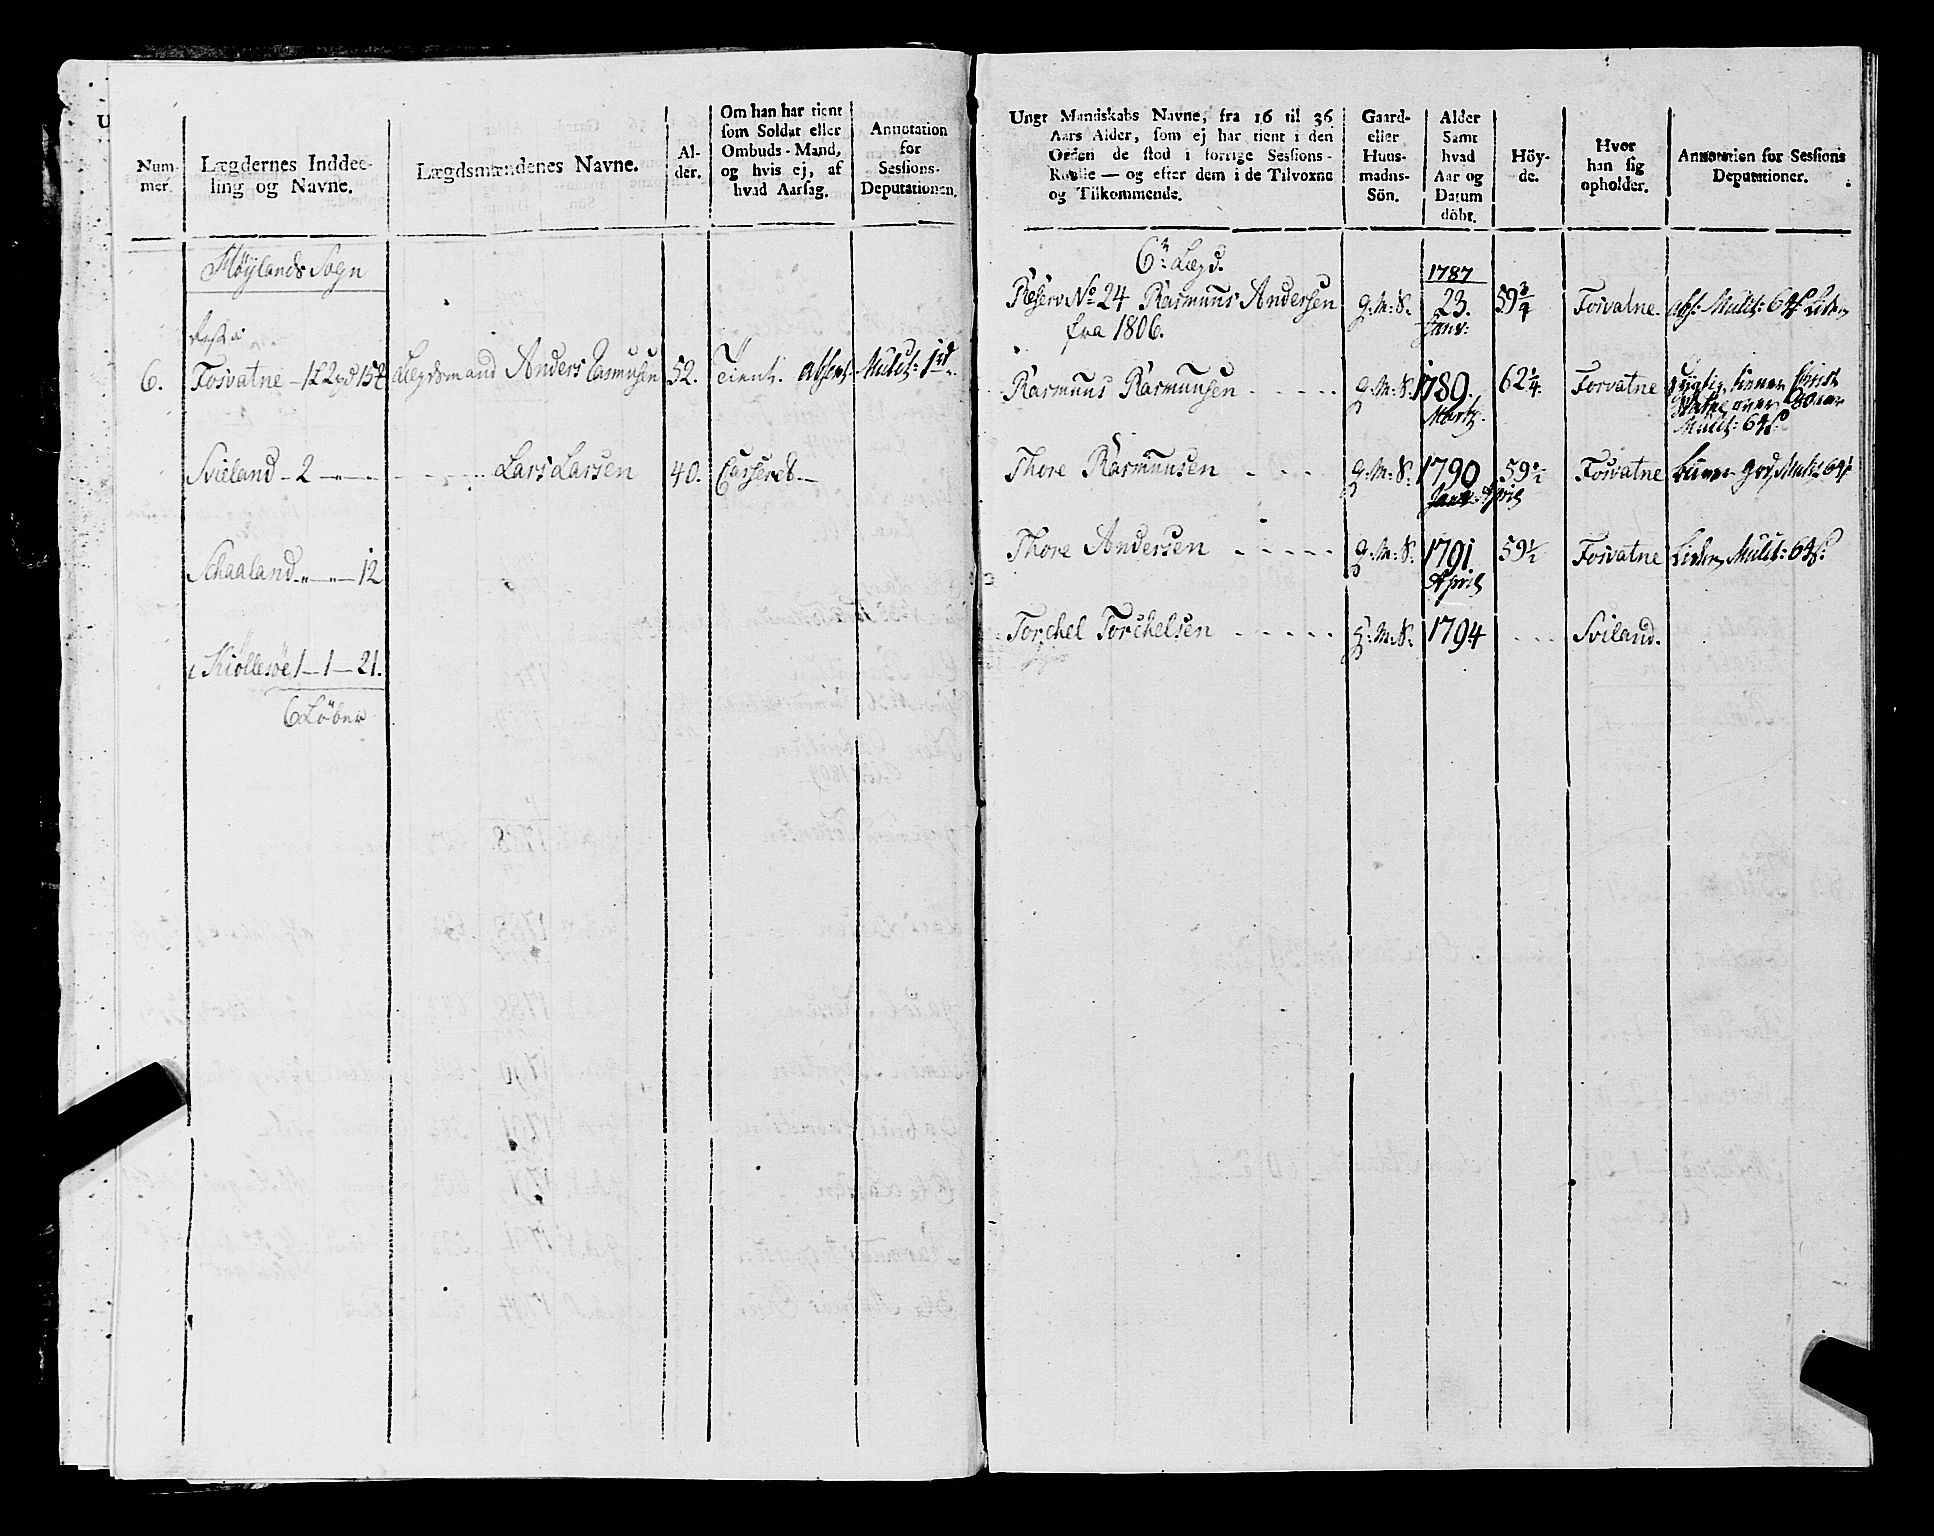 Num-
mer.
Lægdernes Inddee-
ling og Navne.
Lægdsmændenes Navne.
Al-
der.
Om han har tient
som Soldat eller
Ombuds-Mand,
og hvis ej, af
hvad Aarsag.
Annotation
for
Sessions-
Deputationen.
Höylands Sogn
6.
Fosvatne
Lægdsmand Anders Rasmusen
52.
Tient.
Absent Mulct: 1rd
Svieland - 2
Lars Larsen
40.
Casseret
Schaaland 12
Kiöllesöe 1 - 1 - 21.
6 Löber
Ungt Mandskabs Navne, fra 16 til 36
Aars Alder, som ej har tient i den
Orden de stod i forrige Sessions-
Roulle — og efter dem i de Tilvoxne
og Tilkommende.
Gaard-
eller
Huus-
mands-
Sön.
Alder
Samt
hvad
Aar og
Datum
döbt.
Höy-
de.
Hvor
han sig
opholder.
Annotation for Sessions
Deputationer.
6te Lægd.
Reserv No 24 Rasmuus Andersen
fra 1806.
g: M: S.
1787
23.
Janv:
59 3/4
Fosvatne.
abs: Mulct: 64s
Rasmuus Rasmuusen
g: M: S.
1780.
Martz.
62 1/4
Fosvatne
Mulct: 64s.
Thore Rasmuusen
g: M: S.
1790
April
59 1/2
Fosvatne
Mulct 64s
Thore Andersen
g: M: S.
1791
April
59 1/2
Fosvatne
Mulct: 64s.
Torchel Torchelsen
g: M: S.
1794
Sviland.